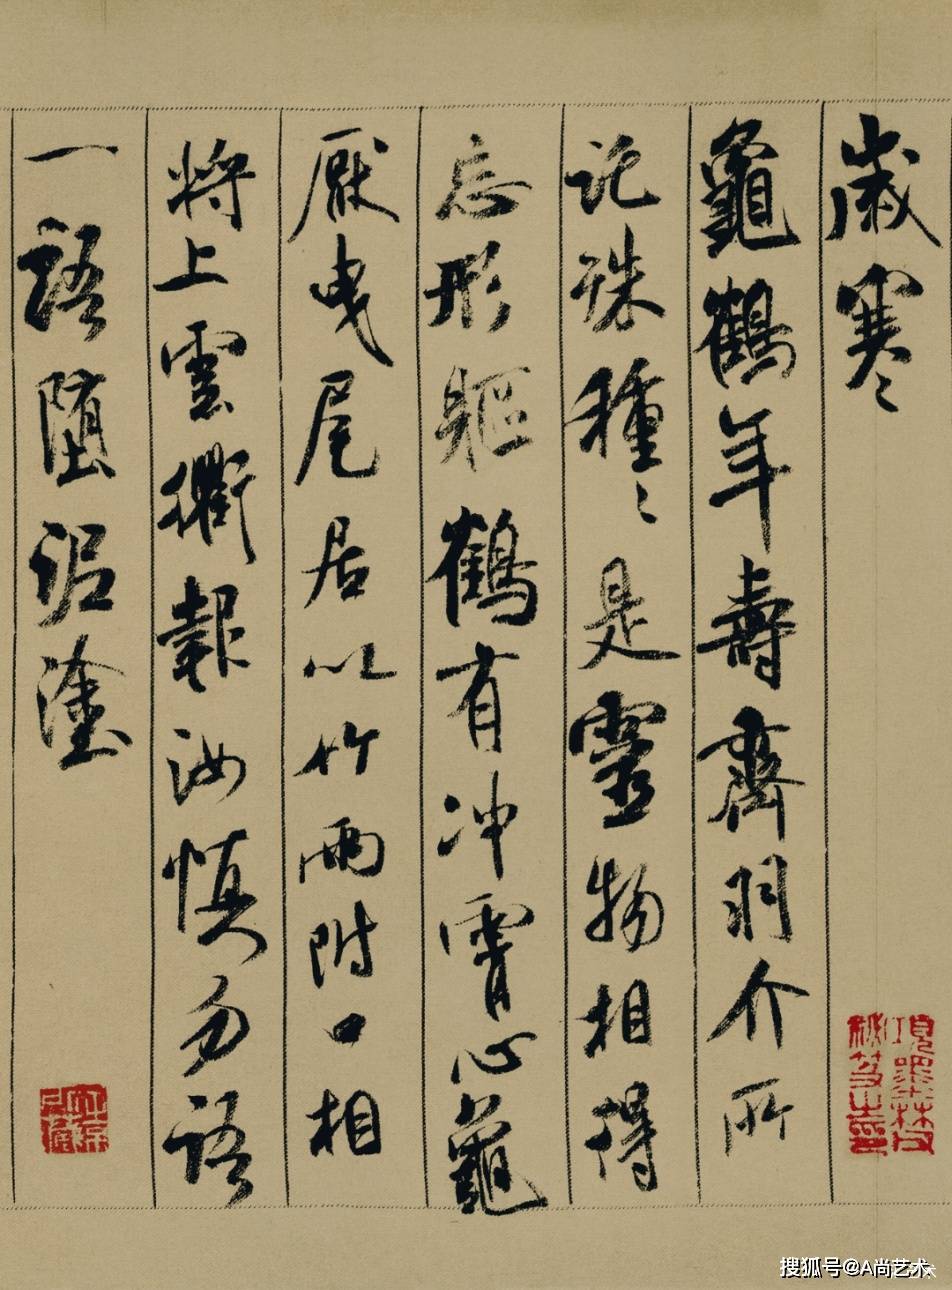 歲寒〻
龜鶴年壽齊羽介所
託殊種〻是靈物相得
忘形軀鶴有冲霄心龜
厭曳尾居以竹兩附口相
將上雲衢報汝慎勿語
一語墮泥塗
搜狐号@A尚艺术